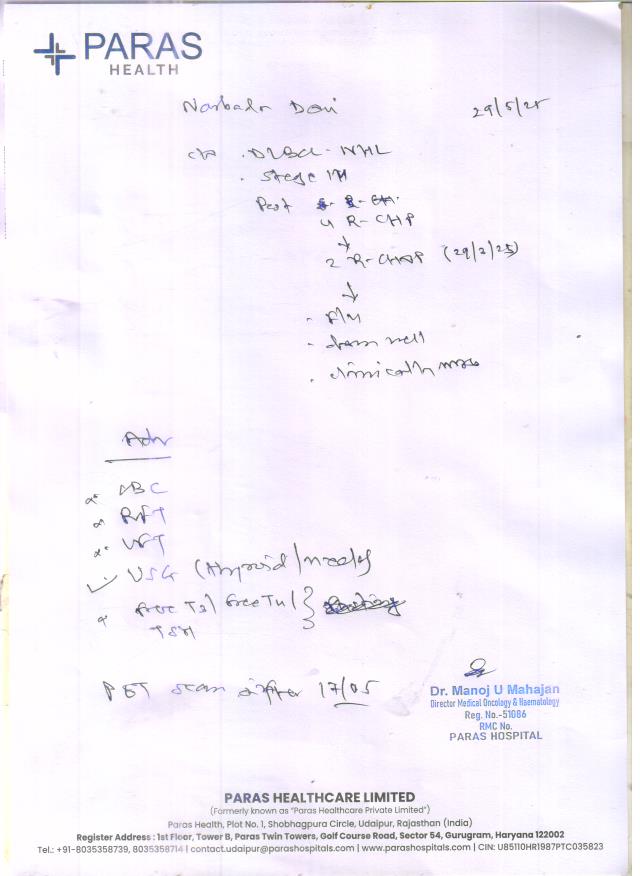 PARAS
HEALTH
29/5/25
DLBCL - NHL
Stage
Post
4 R-CHP
2 R-CHOP (29/3/25)
F/U
clinically
Adv
CBC
RFT
LFT
USG (Thyroid/
free T3/ free T4/
TSH
PET scan after 17/05
Dr. Manoj U Mahajan
Director Medical Oncology & Haematology
Reg. No.-51086
RMC No.
PARAS HOSPITAL
PARAS HEALTHCARE LIMITED
(Formerly known as "Paras Healthcare Private Limited")
Paras Health, Plot No. 1, Shobhagpura Circle, Udaipur, Rajasthan (India)
Register Address : 1st Floor, Tower B, Paras Twin Towers, Golf Course Road, Sector 54, Gurugram, Haryana 122002
Tel.: +91-8035358739, 8035358714 | contact.udaipur@parashospitals.com | www.parashospitals.com | CIN: U85110HR1987PTC035823